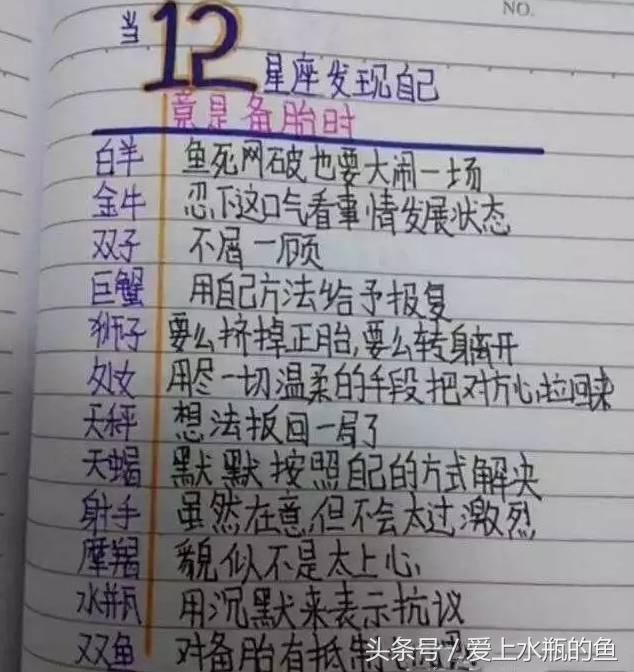 NO.
当12星座发现自己
竟是备胎时
白羊 鱼死网破也要大闹一场
金牛 忍下这口气看事情发展状态
双子 不屑一顾
巨蟹 用自己方法给予报复
狮子 要么挤掉正胎,要么转身离开
处女 用尽一切温柔的手段把对方心拉回来
天秤 想法扳回一局了
天蝎 默默按照自己的方式解决
射手 虽然在意,但不会太过激烈
摩羯 貌似不是太上心
水瓶 用沉默来表示抗议
双鱼 对备胎有抵制
头条号/爱上水瓶的鱼